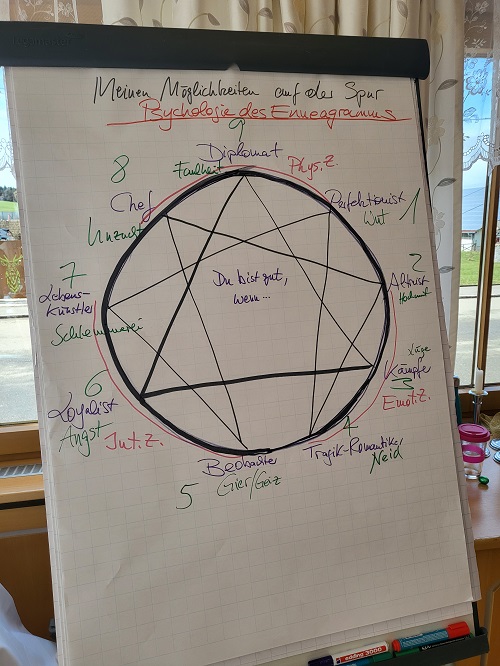 Meinen Möglichkeiten auf der Spur
Psychologie des Enneagramms
9
Diplomat
Faulheit
Phys. Z.
8
Chef
Unzucht
Perfektionist
Wut
1
Du bist gut,
wenn...
7
Lebens-
künstler
Schlemmerei
2
Altruist
Hochmut
6
Loyalist
Angst
Int. Z.
Lüge
Kämpfer
3
Emot. Z.
Beobachter
5
Gier/Geiz
4
Tragik-Romantiker
Neid
edding 3000